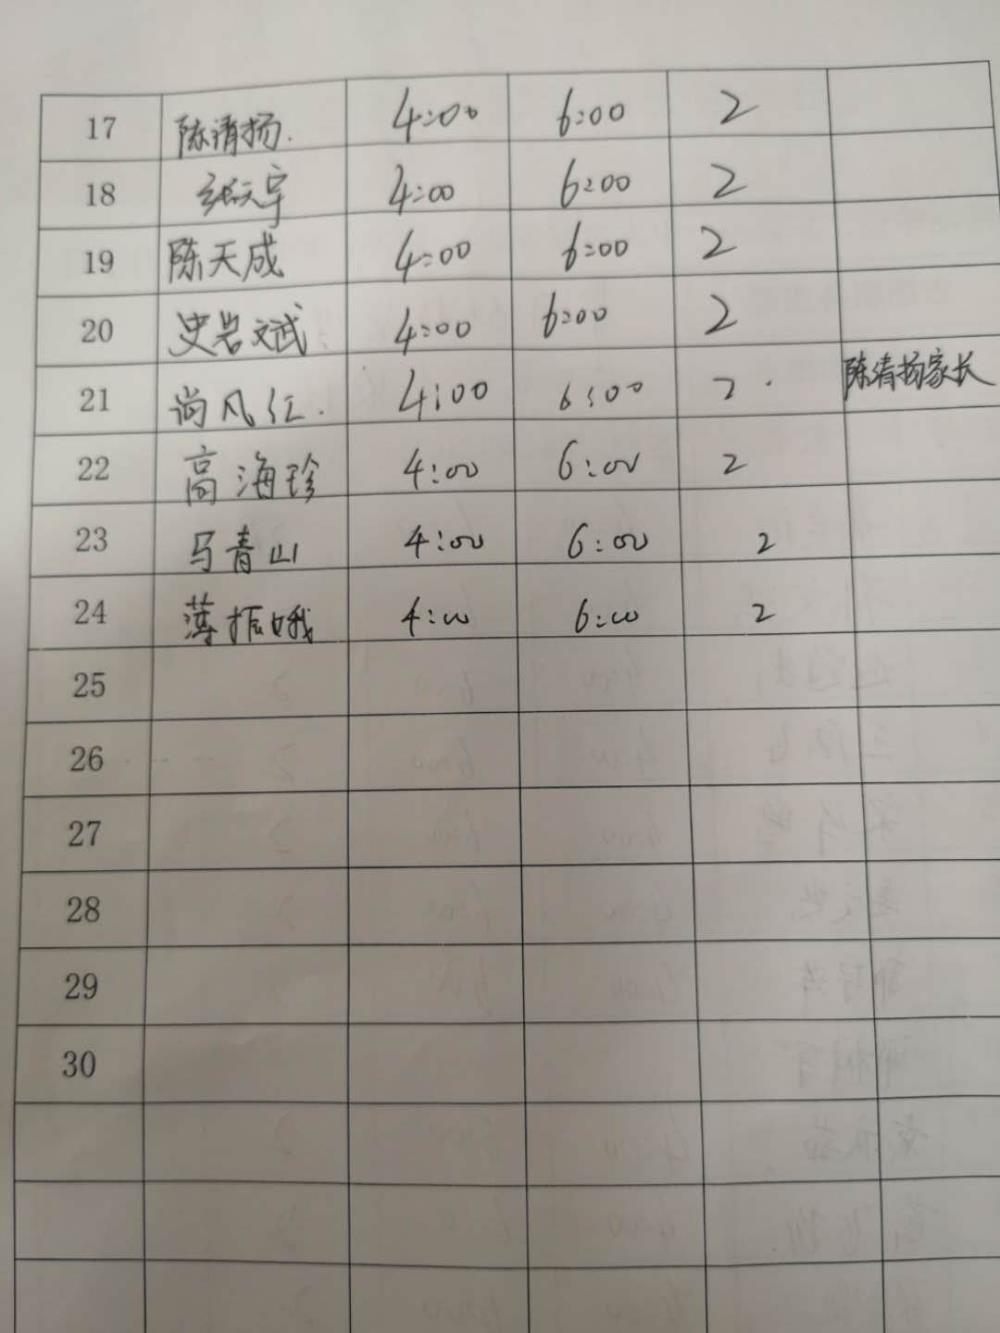 17 陈清扬. 4:00 6:00 2
18 张天宇 4:00 6:00 2
19 陈天成 4:00 6:00 2
20 史岩斌 4:00 6:00 2
21 尚风仁. 4:00 6:00 2 . 陈清扬家长
22 高海珍 4:00 6:00 2
23 马青山 4:00 6:00 2
24 薄振娥 4:00 6:00 2
25
26
27
28
29
30